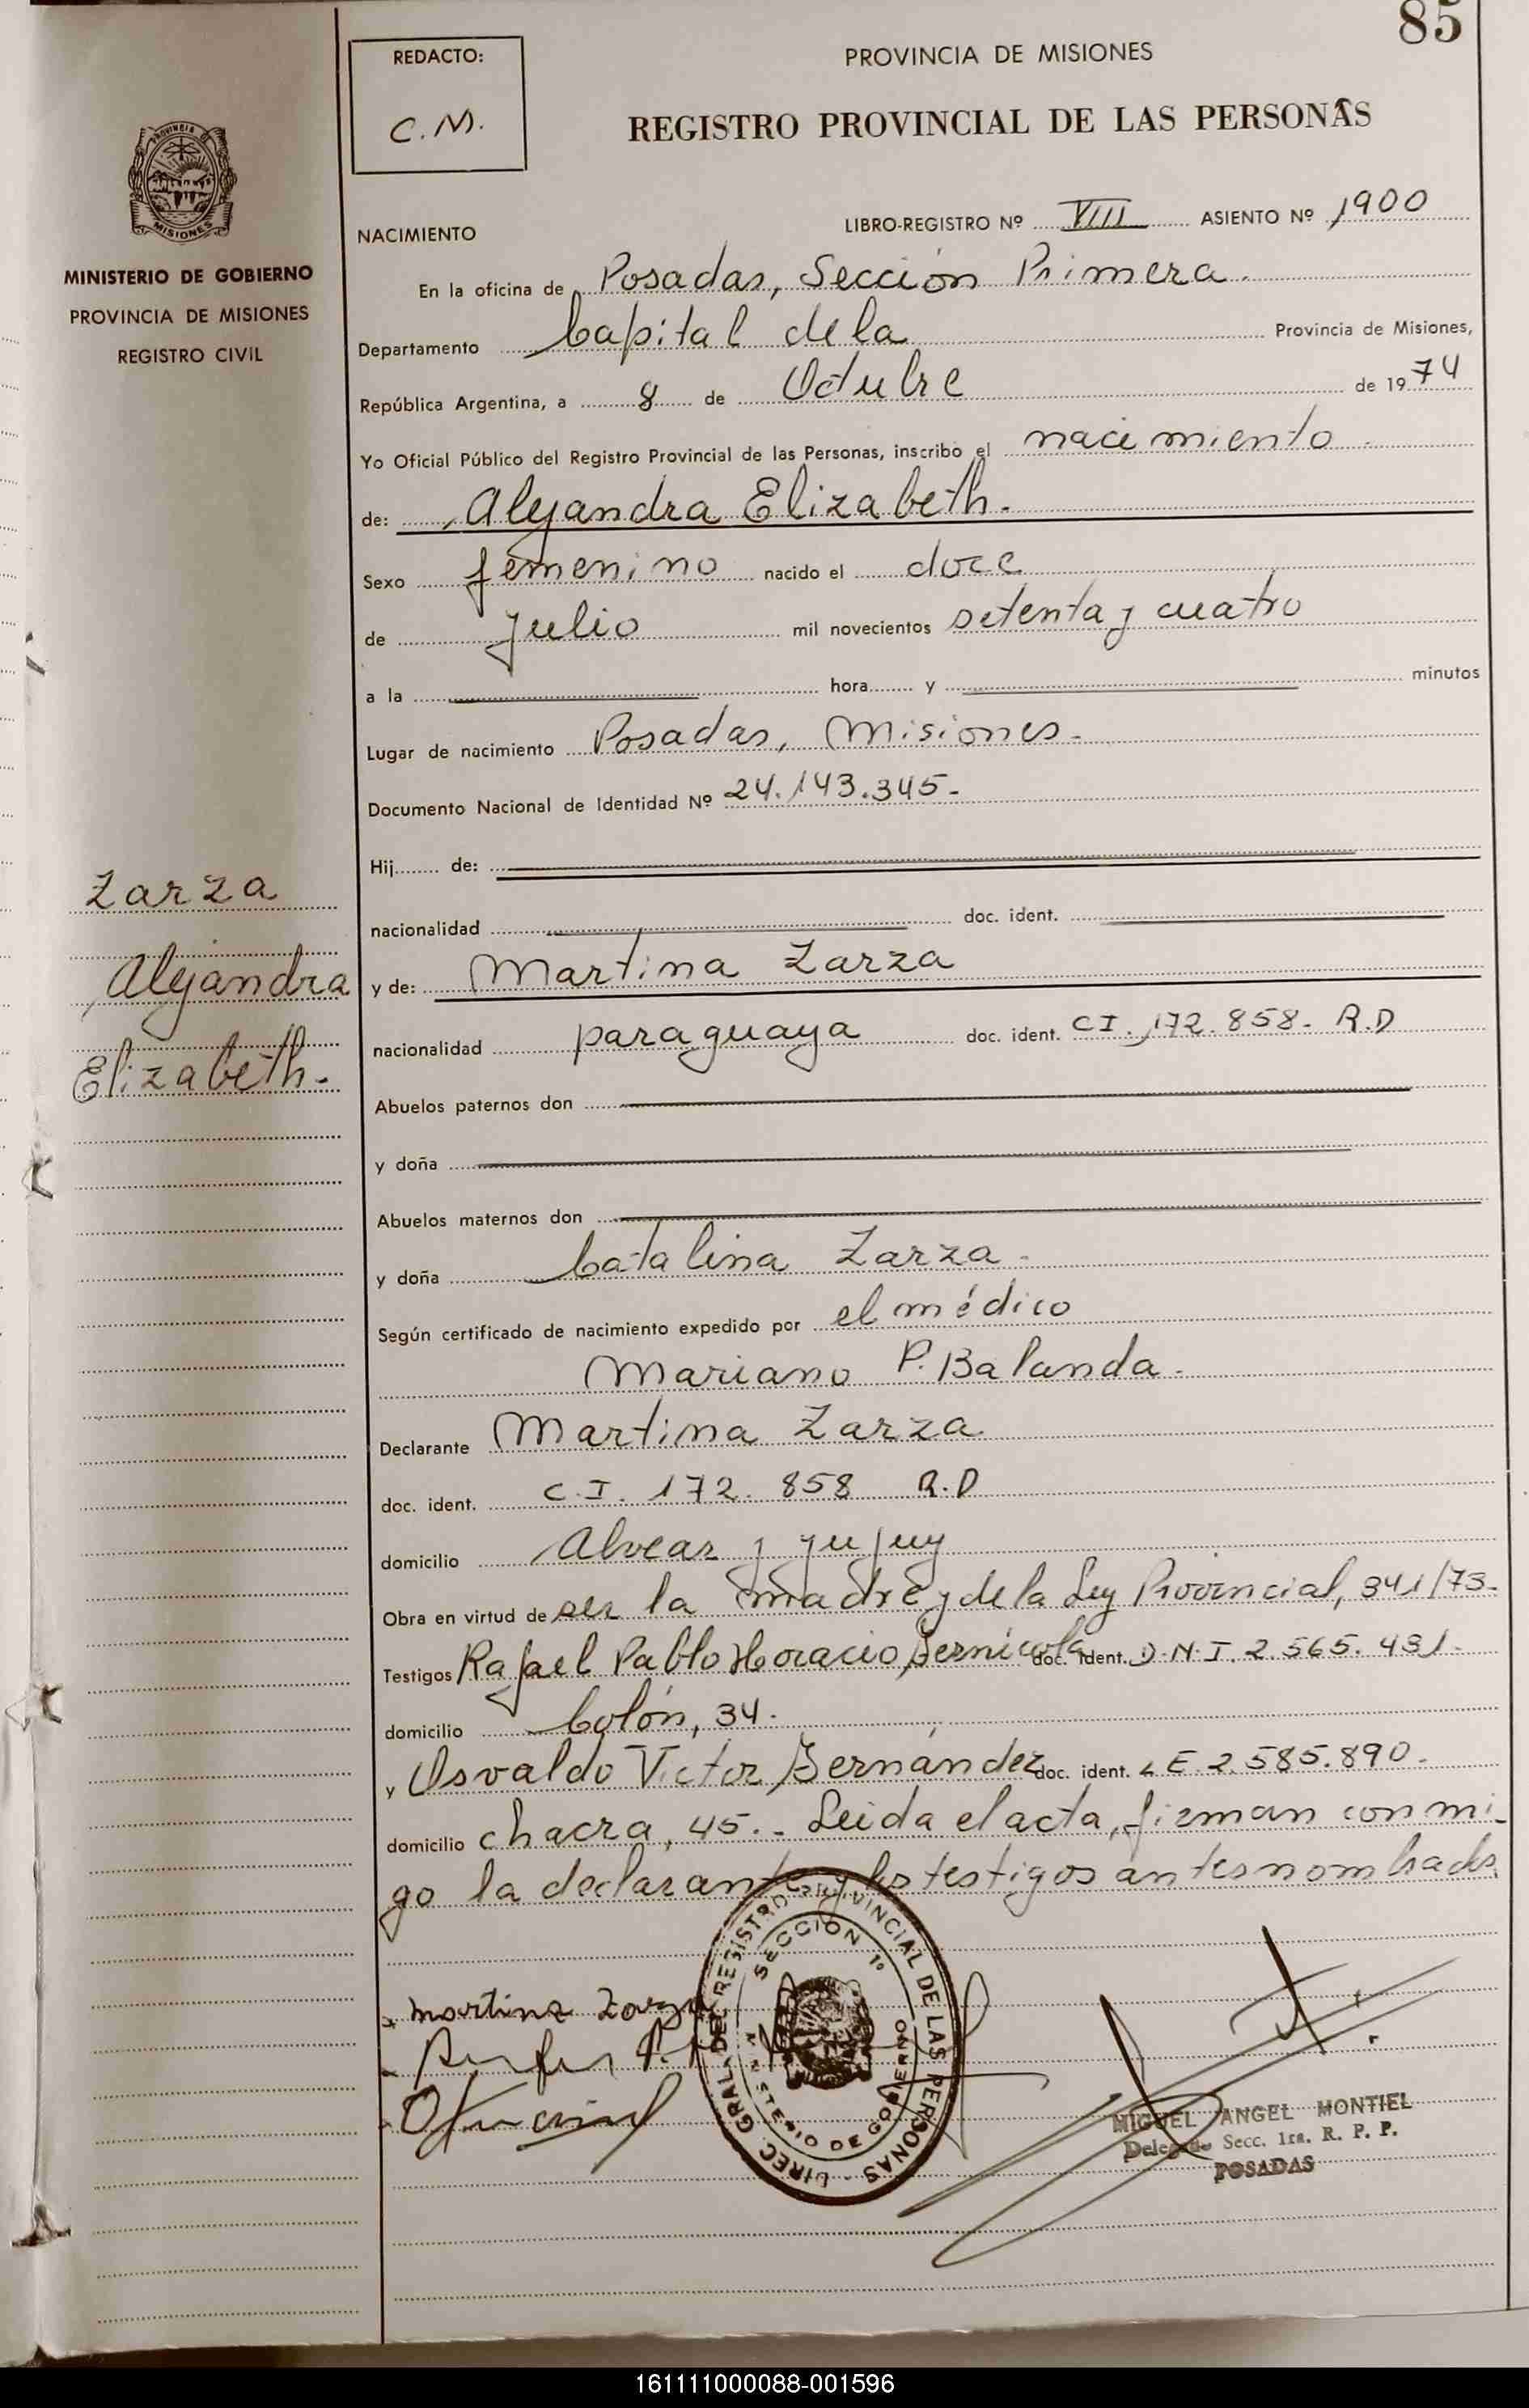 85
REDACTO:
C.M.
PROVINCIA DE MISIONES
REGISTRO PROVINCIAL DE LAS PERSONAS
PROVINCIA DE MISIONES
MINISTERIO DE GOBIERNO
PROVINCIA DE MISIONES
REGISTRO CIVIL
LIBRO-REGISTRO Nº VIII ASIENTO Nº 1900
NACIMIENTO
En la oficina de Posadas, Sección Primera.
Departamento Capital de la Provincia de Misiones,
República Argentina, a 8 de Octubre de 1974
Yo Oficial Público del Registro Provincial de las Personas, inscribo el nacimiento
de: Alejandra Elizabeth.
Sexo femenino nacido el doce
de julio mil novecientos setenta y cuatro
a la hora y minutos
Lugar de nacimiento Posadas, Misiones.
Documento Nacional de Identidad Nº 24.143.345-
Hij de:
nacionalidad doc. ident.
Zarza
Alejandra
Elizabeth.
y de: Martina Zarza
nacionalidad paraguaya doc. ident. CI. 172.858- R.D
Abuelos paternos don
y doña
Abuelos maternos don
y doña Catalina Zarza.
Según certificado de nacimiento expedido por el médico
Mariano P. Balanda.
Declarante Martina Zarza
doc. ident. C.I. 172.858 R.D
domicilio Alvear y Jujuy
Obra en virtud de ser la madre y de la Ley Provincial, 341/73-
Testigos Rafael Pablo Horacio doc. ident. D.N.I. 2.565.431-
domicilio Colón, 34.
y Osvaldo Victor doc. ident. LE. 2.585.890.
domicilio chacra, 45.- Leida el acta, firman conmi-
go la declarante y los testigos antes nombrados.
Martina Zarza
DIREC. GRAL. DEL REGISTRO PROVINCIAL DE LAS PERSONAS
SECCION 1º
MINISTERIO DE GOBIERNO
MIGUEL ANGEL MONTIEL
Delegado Secc. 1ra. R. P. P.
POSADAS
161111000088-001596